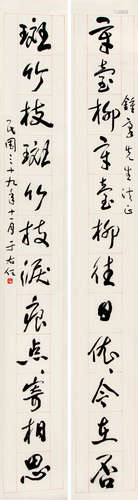 章台柳章台柳往日依依今在否
鍾□先生法正
斑竹枝斑竹枝淚痕点点寄相思
民國三十九年十一月 于右任